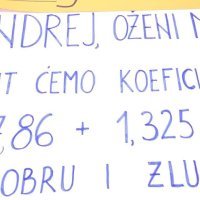 NDREJ, OŽENI
ĆEMO KOEFICI
,86 + 1,325
OBRU I ZLU